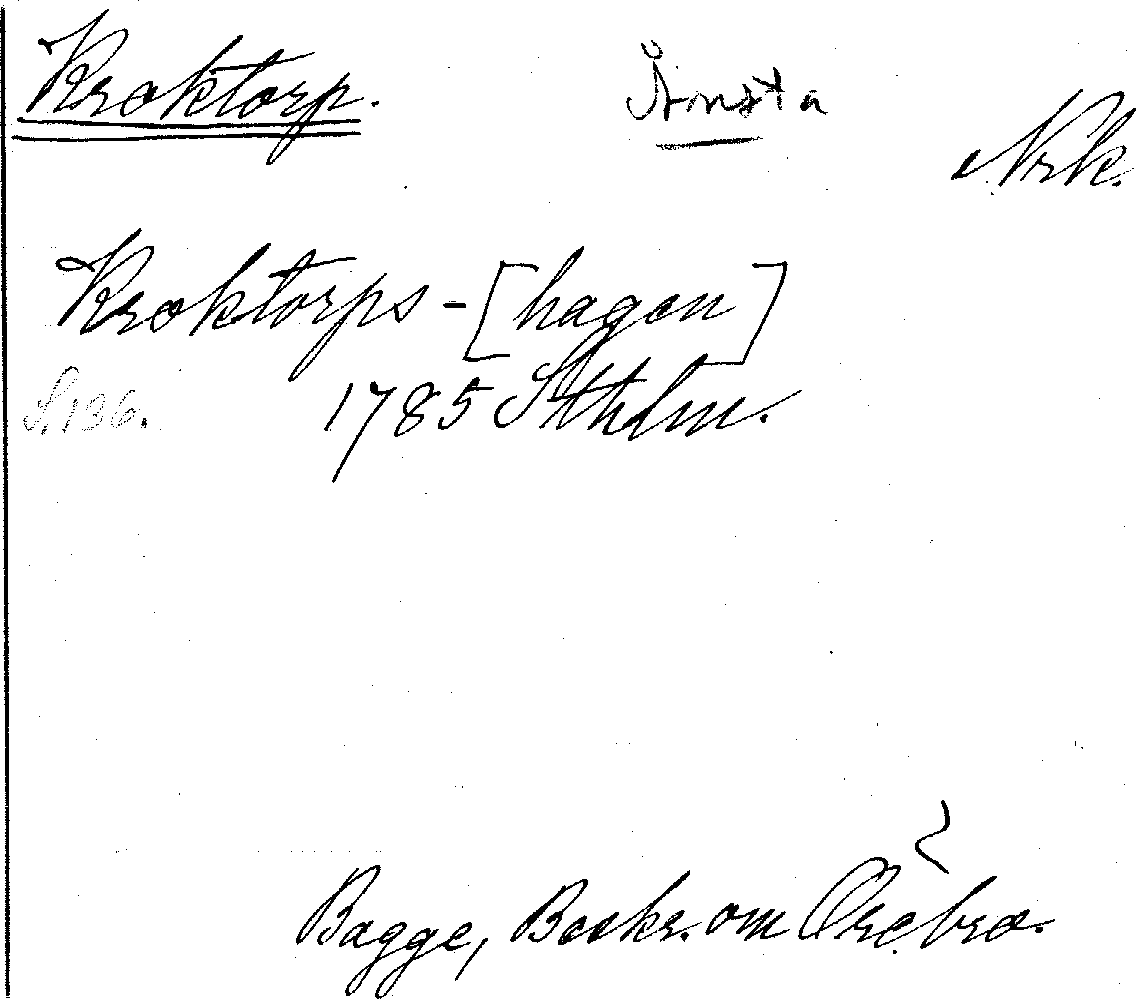 Kroktorp. Ånsta Nrk.
Kroktorps-[hagen]
S. 136. 1785 Sthlm.
Bagge, Beskr. om Örebro.